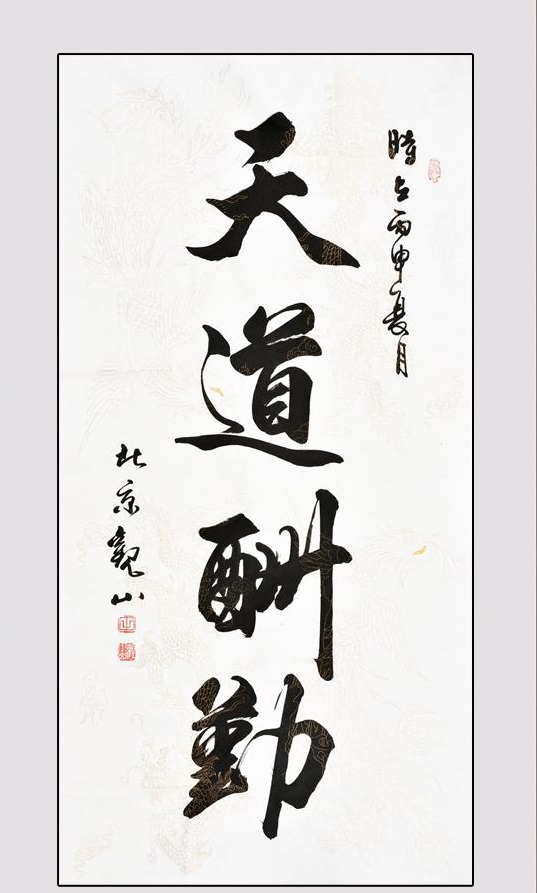 時在丙申夏月
天道酬勤
北京觀山